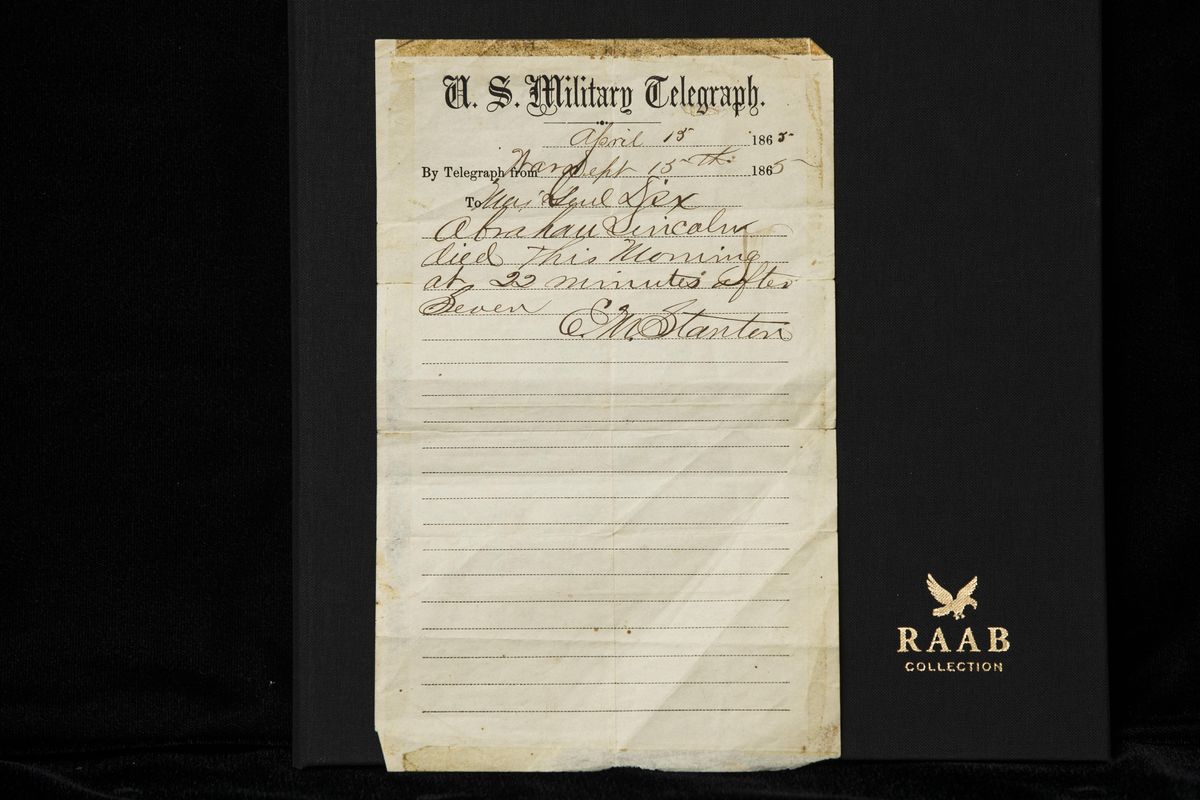 U. S. Military Telegraph.
April 15 1865
By Telegraph from War Dept 15th 1865
To Maj Genl Dix
Abraham Lincoln
died This Morning
at 22 minutes after
Seven
E. M. Stanton
RAAB
COLLECTION